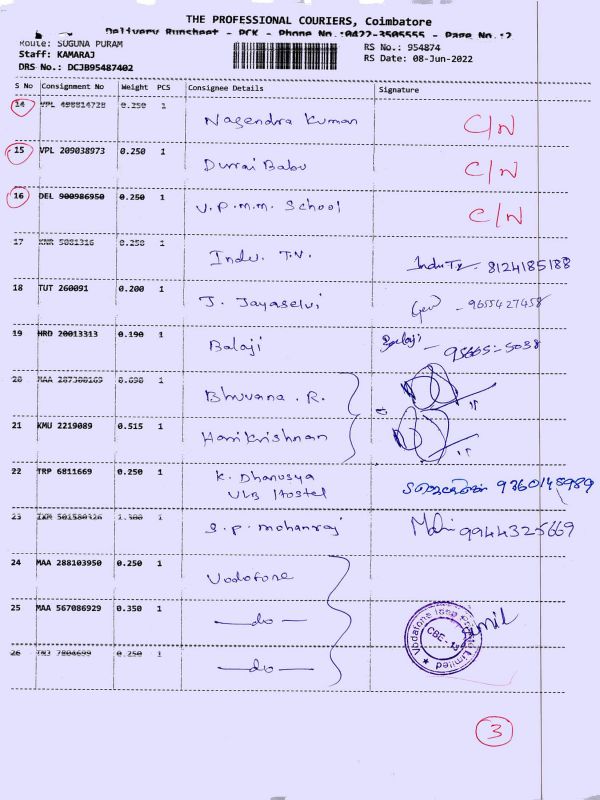 THE PROFESSIONAL COURIERS, Coimbatore
Delivery Runsheet - PCK - Phone No.:0422-3505555 - Page No.:2
Route: SUGUNA PURAM
Staff: KAMARAJ
DRS No.: DCJB95487402
RS No.: 954874
RS Date: 08-Jun-2022
S No Consignment No Weight PCS Consignee Details Signature
14 VPL 0.250 1 Nagendra Kumar C/N
15 VPL 209038973 0.250 1 Durai Babu C/N
16 DEL 900986950 0.250 1 V.P.M.M. School C/N
17 5081316 0.250 1 Indu. T.N. Indu T.N. 8124185188
18 TUT 260091 0.200 1 J. Jayaselvi 9655427458
19 HRD 20013313 0.190 1 Balaji Balaji 95665-5038
20 MAA 1 Bhuvana . R.
21 KMU 2219089 0.515 1 Harikrishnan
22 TRP 6811669 0.250 1 K. Dhanusya 9360145989
VLB Hostel
23 1.300 1 S. P. Mohanraj 9944325669
24 MAA 288103950 0.250 1 Vodafone
25 MAA 567086929 0.350 1 —do—
26 0.250 1 —do—
Vodafone Idea Limited
CBE - 18
3